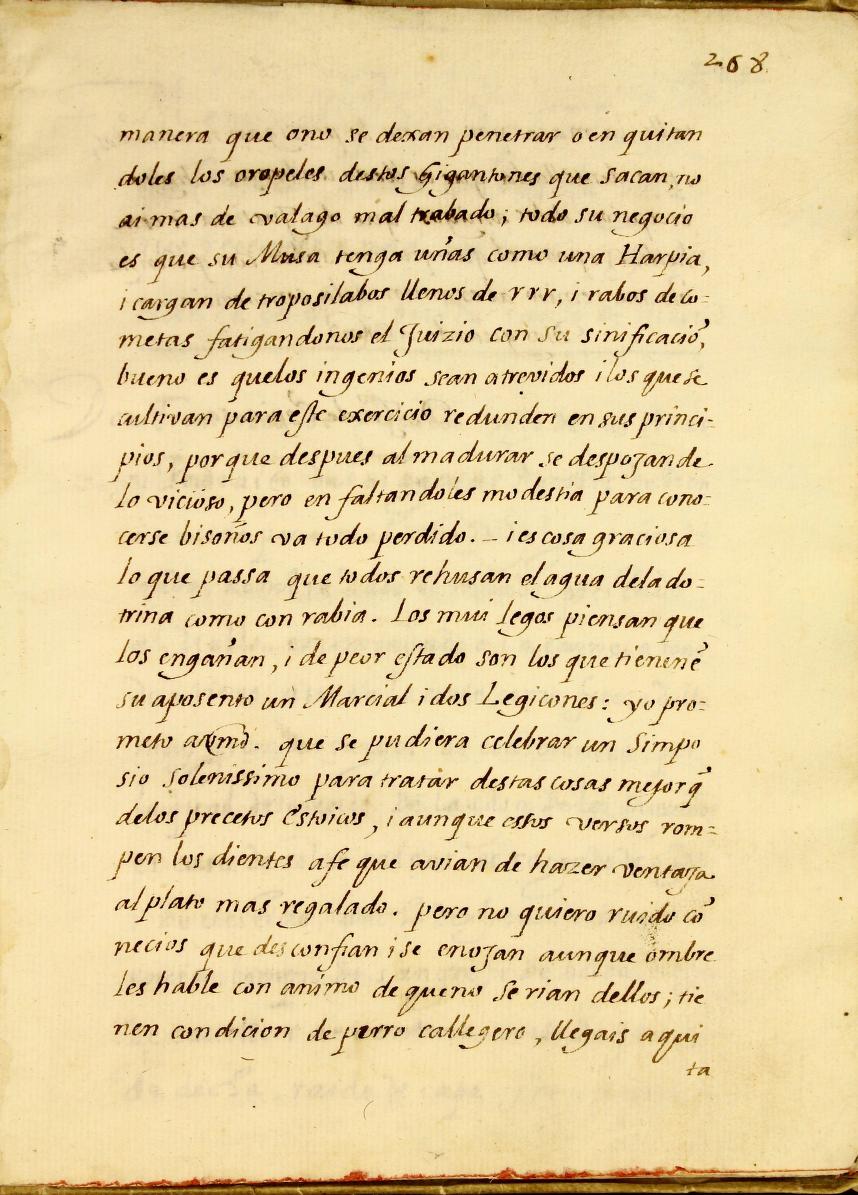 268
manera que ono se dexan penetrar o en quitan
doles los oropeles destos Gigantones que sacan, no
ai mas de valago mal trabado; todo su negocio
es que su Musa tenga uñas como una Harpia,
i cargan de troposilabos llenos de rrr, i rabos de co=
metas fatigandonos el Juizio con su sinificaciõ,
bueno es quelos ingenios sean atrevidos i los que se
cultivan para este exercicio redunden en sus princi-
pios, porque despues al madurar se despojan de
lo vicioso, pero en faltandoles modestia para cono=
cerse bisoños va todo perdido. – i es cosa graciosa
lo que passa que todos rehusan el agua dela do=
trina como con rabia. Los mui legos piensan que
los engañan, i de peor estado son los que tienen ẽ
su aposento un Marcial i dos Legicones: yo pro=
meto a vmd. que se pudiera celebrar un Simpo
sio solenissimo para tratar destas cosas mejor q̃
delos precetos Estoicos, i aunque estos versos rom=
pen los dientes afe que avian de hazer ventaja
al plato mas regalado. pero no quiero ruido cõ
necios que desconfian i se enojan aunque ombre
les hable con animo de que no se rian dellos; tie
nen condicion de perro callegero, llegais a qui
ta